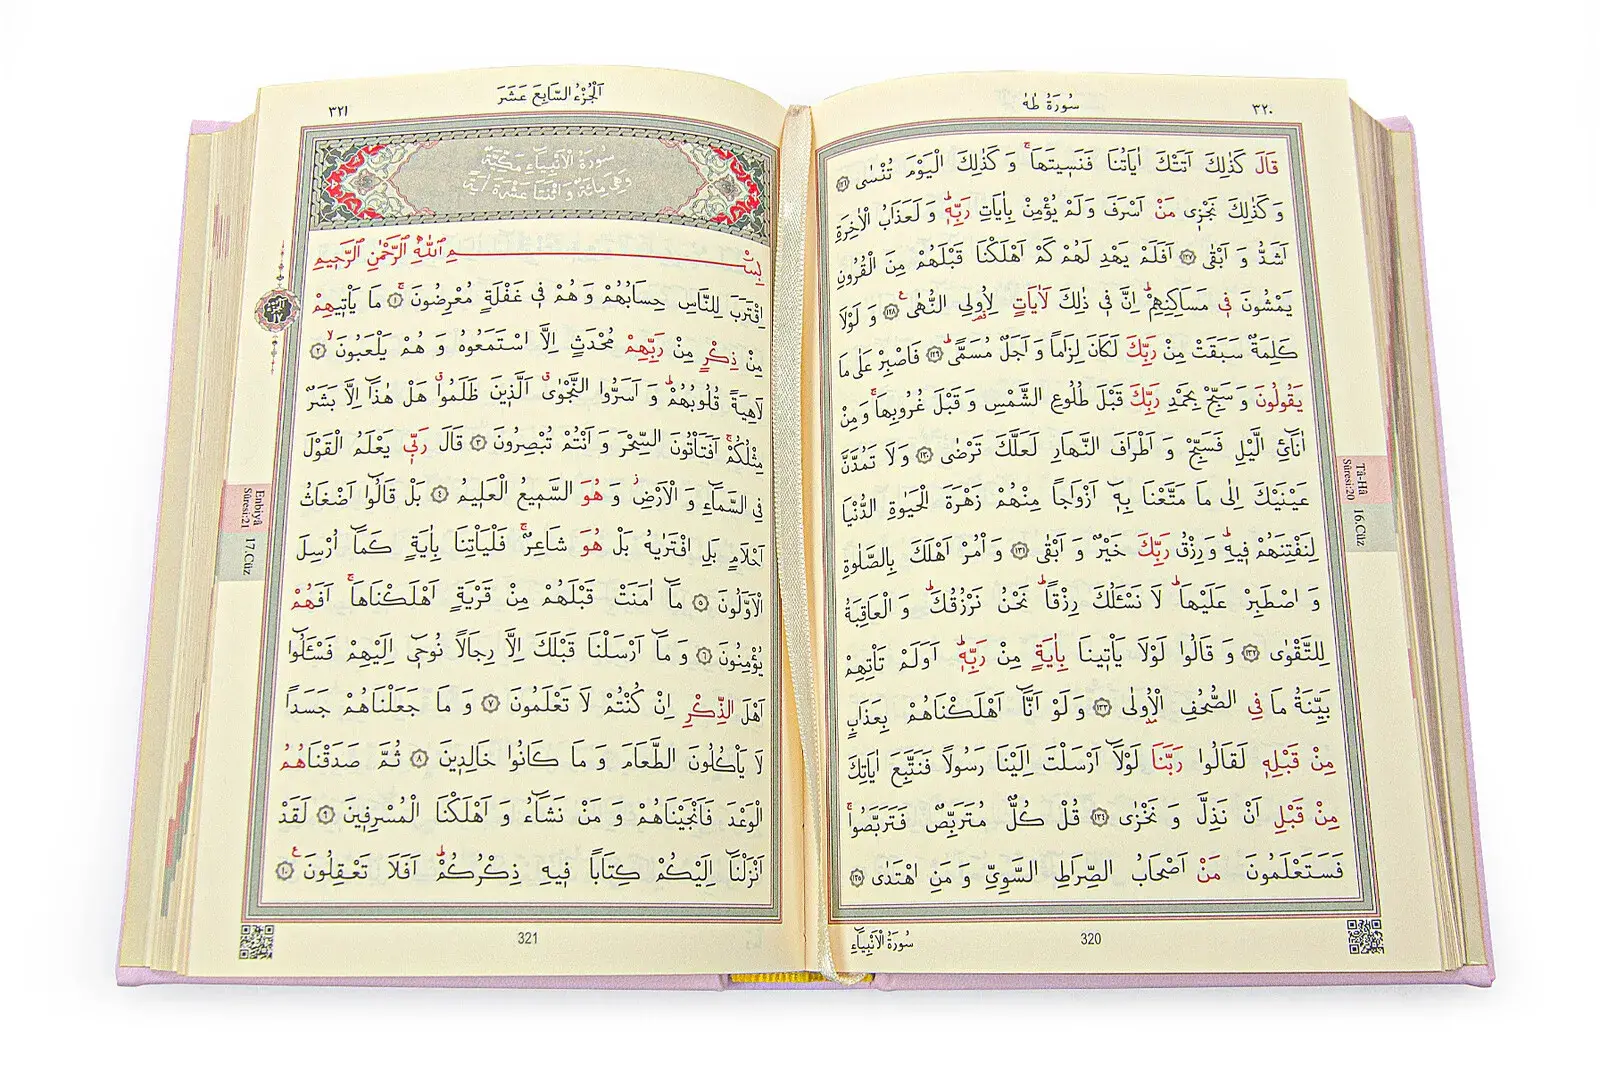 ٣٢٠
سُورَةُ طٰهٰ
قَالَ كَذٰلِكَ اَتَتْكَ اٰيَاتُنَا فَنَسٖيتَهَاۚ وَكَذٰلِكَ الْيَوْمَ تُنْسٰى ﴿١٢٦﴾
وَكَذٰلِكَ نَجْزٖى مَنْ اَسْرَفَ وَلَمْ يُؤْمِنْ بِاٰيَاتِ رَبِّهٖؕ وَلَعَذَابُ الْاٰخِرَةِ
اَشَدُّ وَاَبْقٰى ﴿١٢٧﴾ اَفَلَمْ يَهْدِ لَهُمْ كَمْ اَهْلَكْنَا قَبْلَهُمْ مِنَ الْقُرُونِ
يَمْشُونَ فٖى مَسَاكِنِهِمْؕ اِنَّ فٖى ذٰلِكَ لَاٰيَاتٍ لِاُو۬لِى النُّهٰىࣖ ﴿١٢٨﴾ وَلَوْلَا
كَلِمَةٌ سَبَقَتْ مِنْ رَبِّكَ لَكَانَ لِزَامًا وَاَجَلٌ مُسَمًّىؕ ﴿١٢٩﴾ فَاصْبِرْ عَلٰى مَا
يَقُولُونَ وَسَبِّحْ بِحَمْدِ رَبِّكَ قَبْلَ طُلُوعِ الشَّمْسِ وَقَبْلَ غُرُوبِهَاۚ وَمِنْ
اٰنَآئِ الَّيْلِ فَسَبِّحْ وَاَطْرَافَ النَّهَارِ لَعَلَّكَ تَرْضٰى ﴿١٣٠﴾ وَلَا تَمُدَّنَّ
عَيْنَيْكَ اِلٰى مَا مَتَّعْنَا بِهٖٓ اَزْوَاجًا مِنْهُمْ زَهْرَةَ الْحَيٰوةِ الدُّنْيَا
لِنَفْتِنَهُمْ فٖيهِؕ وَرِزْقُ رَبِّكَ خَيْرٌ وَاَبْقٰى ﴿١٣١﴾ وَاْمُرْ اَهْلَكَ بِالصَّلٰوةِ
وَاصْطَبِرْ عَلَيْهَاؕ لَا نَسْـَٔلُكَ رِزْقًاؕ نَحْنُ نَرْزُقُكَؕ وَالْعَاقِبَةُ
لِلتَّقْوٰى ﴿١٣٢﴾ وَقَالُوا لَوْلَا يَاْتٖينَا بِاٰيَةٍ مِنْ رَبِّهٖؕ اَوَلَمْ تَاْتِهِمْ
بَيِّنَةُ مَا فِى الصُّحُفِ الْاُو۫لٰى ﴿١٣٣﴾ وَلَوْ اَنَّٓا اَهْلَكْنَاهُمْ بِعَذَابٍ
مِنْ قَبْلِهٖ لَقَالُوا رَبَّنَا لَوْلَٓا اَرْسَلْتَ اِلَيْنَا رَسُولًا فَنَتَّبِعَ اٰيَاتِكَ
مِنْ قَبْلِ اَنْ نَذِلَّ وَنَخْزٰى ﴿١٣٤﴾ قُلْ كُلٌّ مُتَرَبِّصٌ فَتَرَبَّصُواۚ
فَسَتَعْلَمُونَ مَنْ اَصْحَابُ الصِّرَاطِ السَّوِىِّ وَمَنِ اهْتَدٰى ﴿١٣٥﴾
Tâ-Hâ
Sûresi:20
16.Cüz
320
سُورَةُ الْاَنْبِيَٓاءِ
اَلْجُزْءُ السَّابِعَ عَشَرَ
٣٢١
سُورَةُ الْاَنْبِيَاءِ مَكِّيَّةٌ
وَهِىَ مِائَةٌ وَاثْنَتَا عَشْرَةَ اٰيَةً
بِسْمِ اللّٰهِ الرَّحْمٰنِ الرَّحٖيمِ
اِقْتَرَبَ لِلنَّاسِ حِسَابُهُمْ وَهُمْ فٖى غَفْلَةٍ مُعْرِضُونَۚ ﴿١﴾ مَا يَاْتٖيهِمْ
مِنْ ذِكْرٍ مِنْ رَبِّهِمْ مُحْدَثٍ اِلَّا اسْتَمَعُوهُ وَهُمْ يَلْعَبُونَۙ ﴿٢﴾
لَاهِيَةً قُلُوبُهُمْؕ وَاَسَرُّوا النَّجْوٰىۗ اَلَّذٖينَ ظَلَمُواۗ هَلْ هٰذَٓا اِلَّا بَشَرٌ
مِثْلُكُمْۚ اَفَتَاْتُونَ السِّحْرَ وَاَنْتُمْ تُبْصِرُونَ ﴿٣﴾ قَالَ رَبّٖى يَعْلَمُ الْقَوْلَ
فِى السَّمَٓاءِ وَالْاَرْضِؗ وَهُوَ السَّمٖيعُ الْعَلٖيمُ ﴿٤﴾ بَلْ قَالُٓوا اَضْغَاثُ
اَحْلَامٍ بَلِ افْتَرٰيهُ بَلْ هُوَ شَاعِرٌۚ فَلْيَاْتِنَا بِاٰيَةٍ كَمَٓا اُرْسِلَ
الْاَوَّلُونَ ﴿٥﴾ مَٓا اٰمَنَتْ قَبْلَهُمْ مِنْ قَرْيَةٍ اَهْلَكْنَاهَاۚ اَفَهُمْ
يُؤْمِنُونَ ﴿٦﴾ وَمَٓا اَرْسَلْنَا قَبْلَكَ اِلَّا رِجَالًا نُوحٖٓى اِلَيْهِمْ فَسْـَٔلُٓوا
اَهْلَ الذِّكْرِ اِنْ كُنْتُمْ لَا تَعْلَمُونَ ﴿٧﴾ وَمَا جَعَلْنَاهُمْ جَسَدًا
لَا يَاْكُلُونَ الطَّعَامَ وَمَا كَانُوا خَالِدٖينَ ﴿٨﴾ ثُمَّ صَدَقْنَاهُمُ
الْوَعْدَ فَاَنْجَيْنَاهُمْ وَمَنْ نَشَٓاءُ وَاَهْلَكْنَا الْمُسْرِفٖينَ ﴿٩﴾ لَقَدْ
اَنْزَلْنَٓا اِلَيْكُمْ كِتَابًا فٖيهِ ذِكْرُكُمْؕ اَفَلَا تَعْقِلُونَࣖ ﴿١٠﴾
Enbiyâ
Sûresi:21
17.Cüz
321